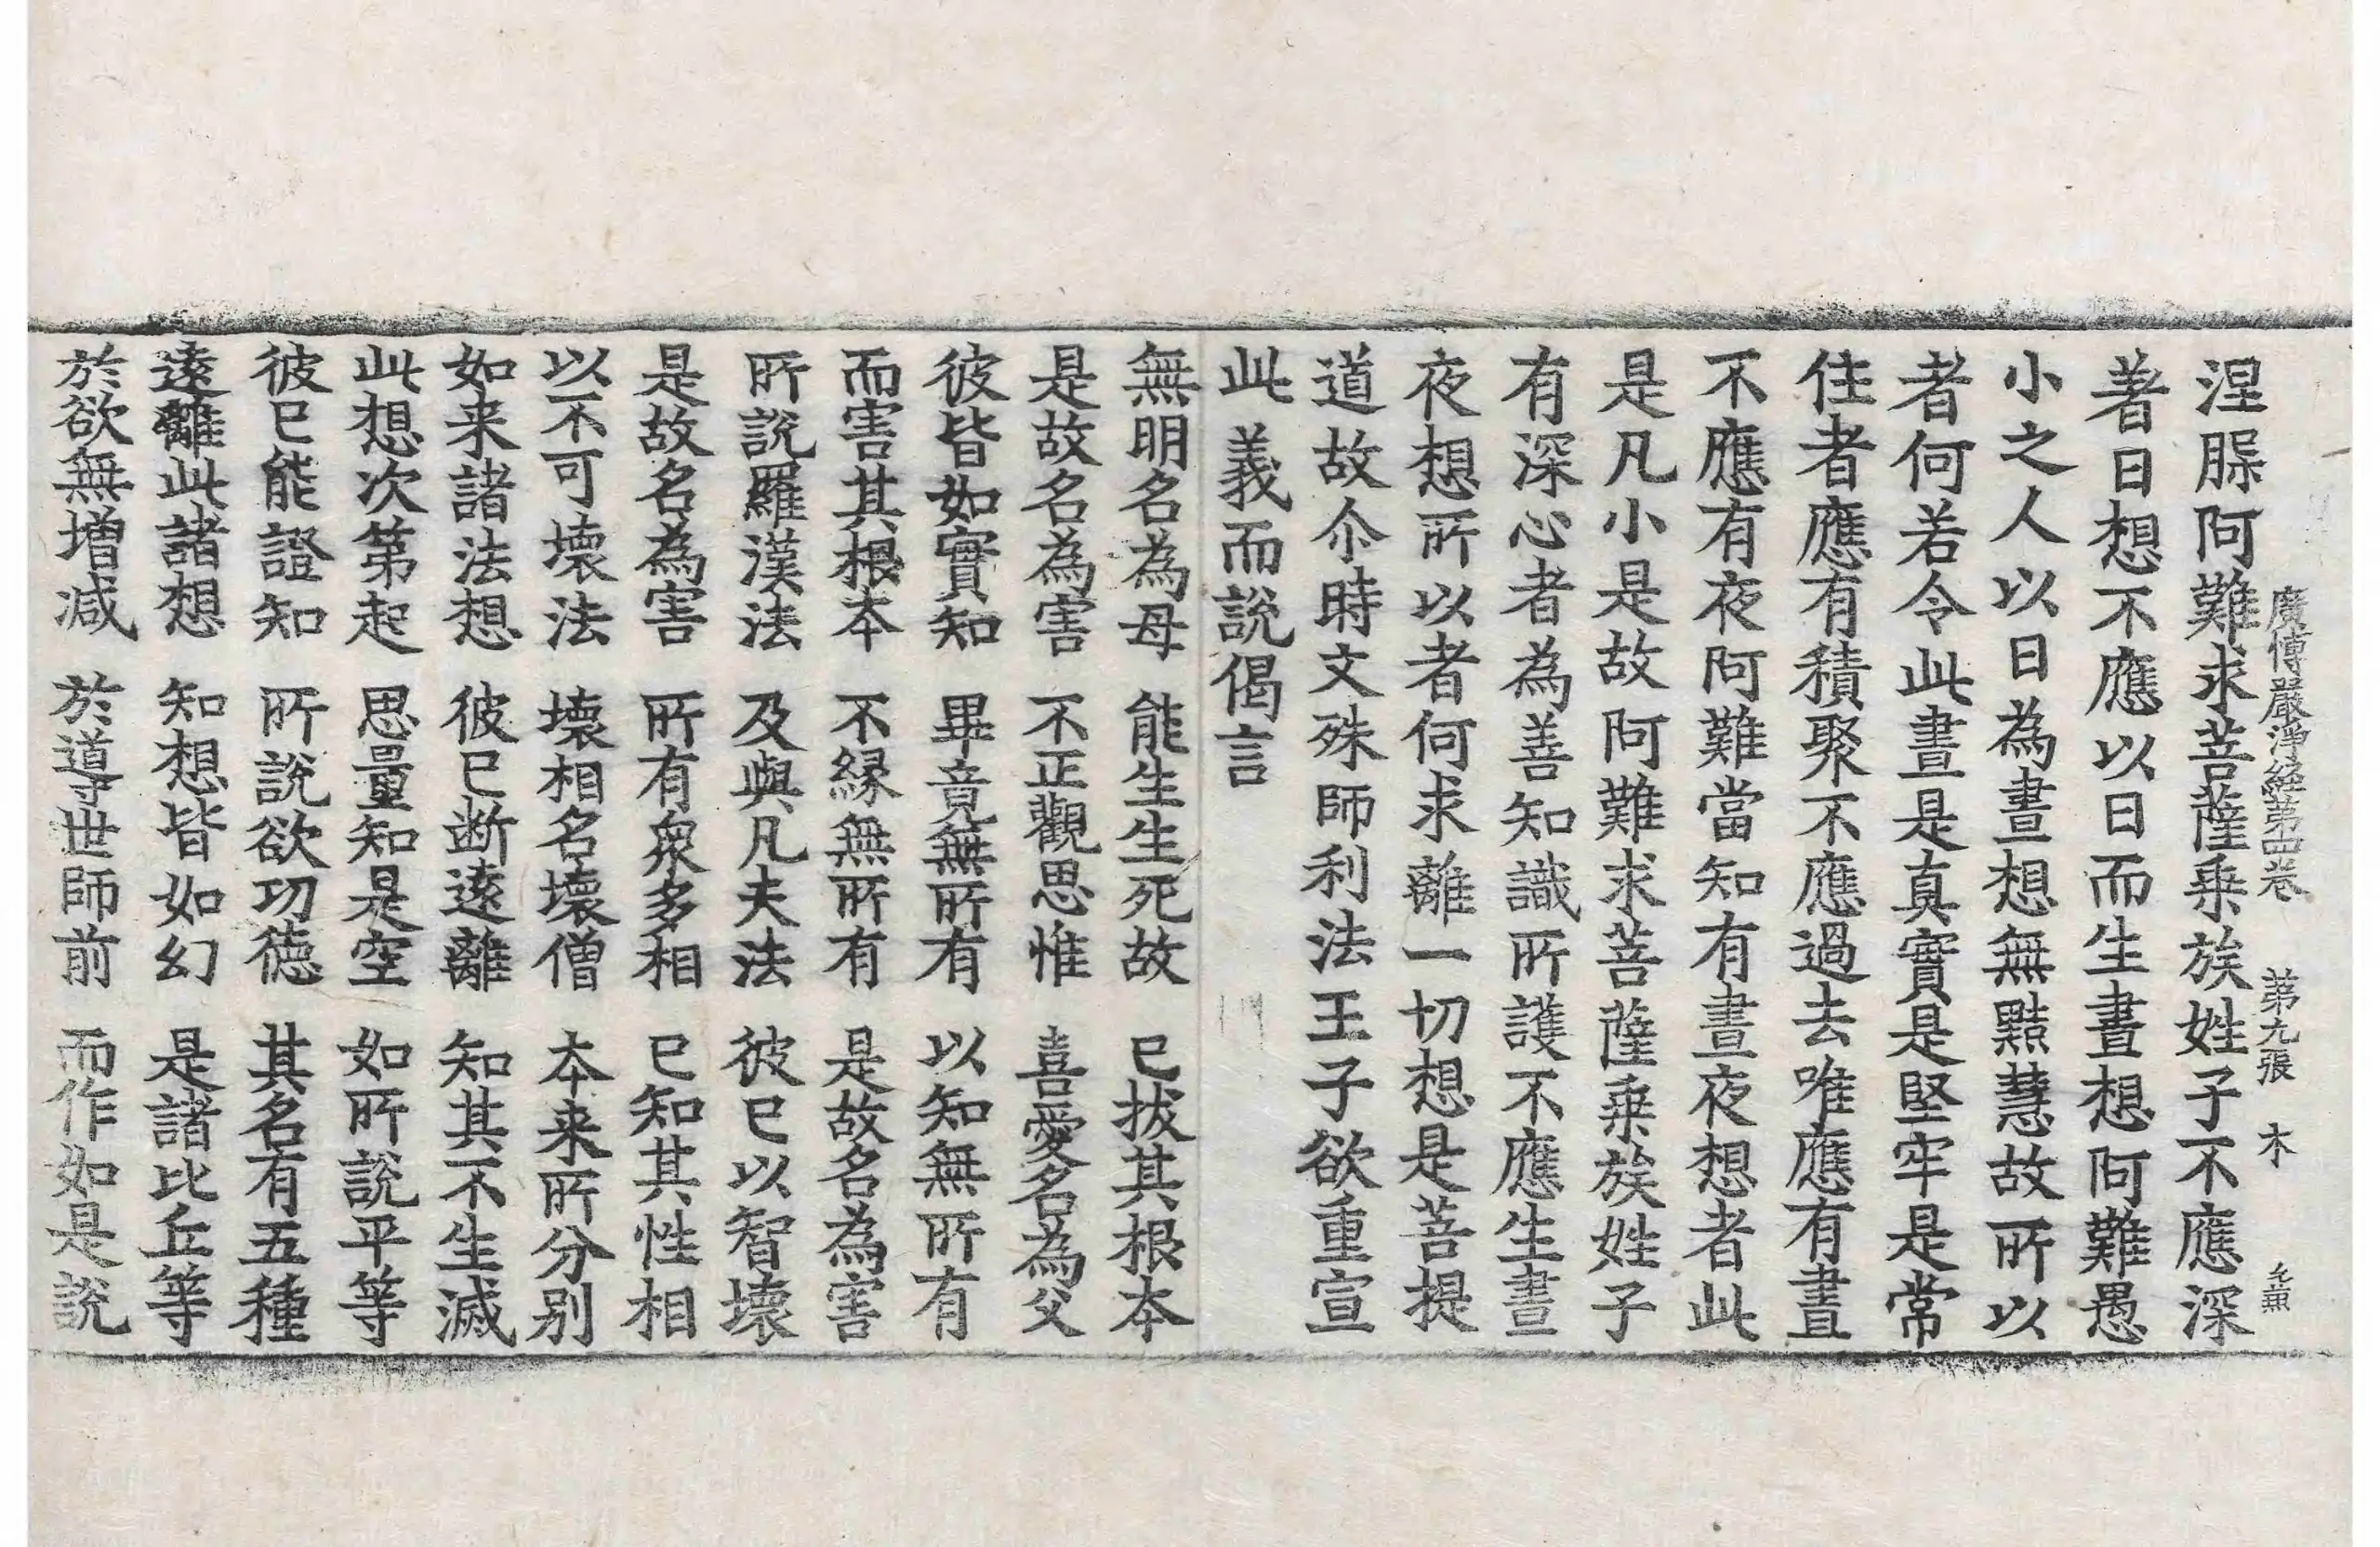 廣博嚴淨經第四卷　第九張　木
涅脲阿難求菩薩乗族姓子不應深
著日想不應以日而生晝想阿難愚
小之人以日為晝想無黠慧故所以
者何若令此晝是真實是堅牢是常
住者應有積聚不應過去唯應有晝
不應有夜阿難當知有晝夜想者此
是凡小是故阿難求菩薩乗族姓子
有深心者為善知識所護不應生晝
夜想所以者何求離一切想是菩提
道故尒時文殊師利法王子欲重宣
此義而說偈言
無明名為母　能生生死故　已拔其根本
是故名為害　不正觀思惟　喜愛名為父
彼皆如實知　畢竟無所有　以知無所有
而害其根本　不縁無所有　是故名為害
所說羅漢法　及與凡夫法　彼已以智壞
是故名為害　所有衆多相　已知其性相
以不可壞法　壞相名壞僧　本来所分别
如来諸法想　彼已断遠離　知其不生滅
此想次第起　思量知是空　如所說平等
彼已能證知　所說欲功徳　其名有五種
遠離此諸想　知想皆如幻　是諸比丘等
於欲無增减　於道導世師前　而作如是說